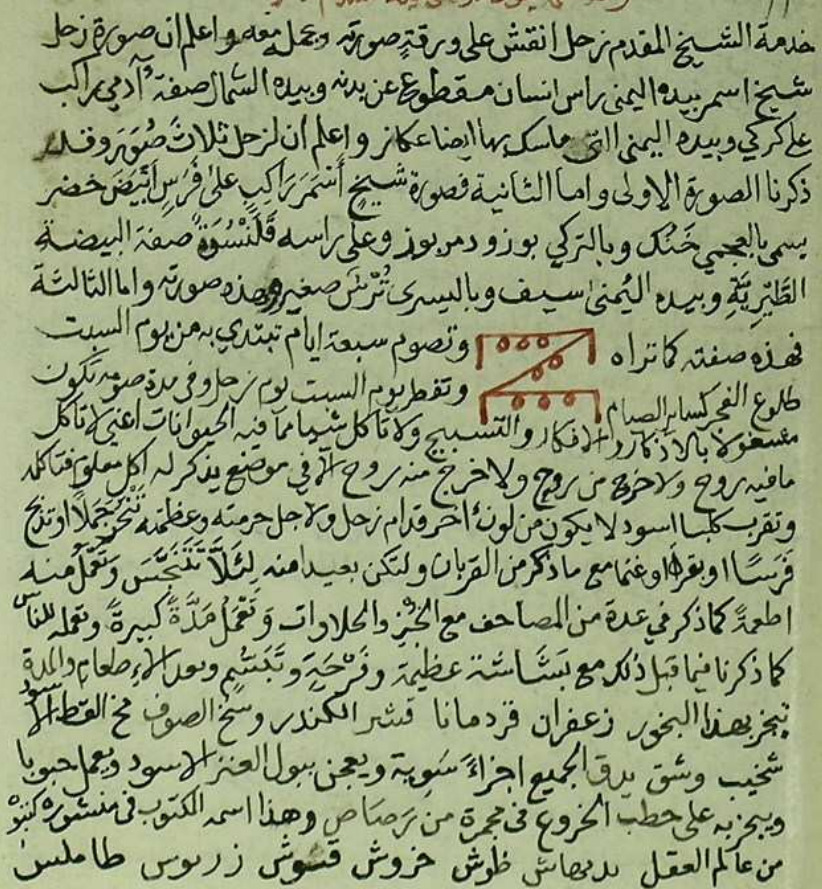 خدمة الشيخ المقدم زحل انقش على ورقة صورته وعمله معه واعلم ان صورة زحل
شيخ اسمر بيده اليمنى راس انسان مقطوع عن بدنه وبيده الشمال صفة آدمي راكب
على كركي وبيده اليمنى التي ماسك بها ايضا عكاز واعلم ان لزحل ثلاث صُوَر وقد
ذكرنا الصورة الاولى واما الثانية فصورة شيخٍ أَسْمَرَ رَاكِبٍ على فَرَسٍ اَبْيَضَ خضر
يسمى بالعجمي خَنْك وبالتركي بوز ودمر بوز وعلى راسه قَلَنْسُوَةٌ صفة البيضة
الطَّيْرِيَّةِ وبيده اليُمنى سيف وباليسرى تُرْسٌ صغير وهذه صورته واما الثالثة
فهذه صفته كما تراه وتصوم سبعة ايام تبتدي به من يوم السبت
طلوع الفجر كساير الصيام وتفطر يوم السبت يوم زحل وفي مدة صومه تكون
مشغولا بالاذكار والافكار والتسبيح ولا تاكل شيا مما فيه الحيوانات اعني لا تاكل
مافيه روح ولا خرج من روح ولا خرج منه روح الا في موضع يذكر له اكل معلوم فتاكله
وتقرب كلبا اسود لا يكون من لون اخر قدام زحل ولاجل حرمته وعظمته تَنْحَرُ جَمَلًا اوتذبح
فَرَسًا اوبقرا اوغنما مع ماذكر من القربان ولتكن بعيدا منه لِئَلَّا تَتَنَجَّسَ وتَعْمَلُ منه
اطعمةً كما ذكر في عدة من المصاحف مع الخُبْزِ والحلاوات وَتَعْمَلُ مَدَّةً كبيرةً وتعمله للناس
كما ذكرنا فيما قبل ذلك مع بَشَاشَة عظيمة وفَرْحَةٍ وتَبَسُّمٍ وبعد الاطعام والمدة
تبخر بهذا البخور زعفران قردمانا قشر الكندر وسخ الصوف مخ القط الاسود
شخيب وشق يدق الجميع اجزاءً سَوِية ويعجن ببول العنز الاسود ويعمل حبوبا
ويبخر به على حطب الخروع في مجمرة من رَصَاصٍ وهذا اسمه المكتوب في منشوره
من عالم العقل ظوش خروش قسوش طامليس